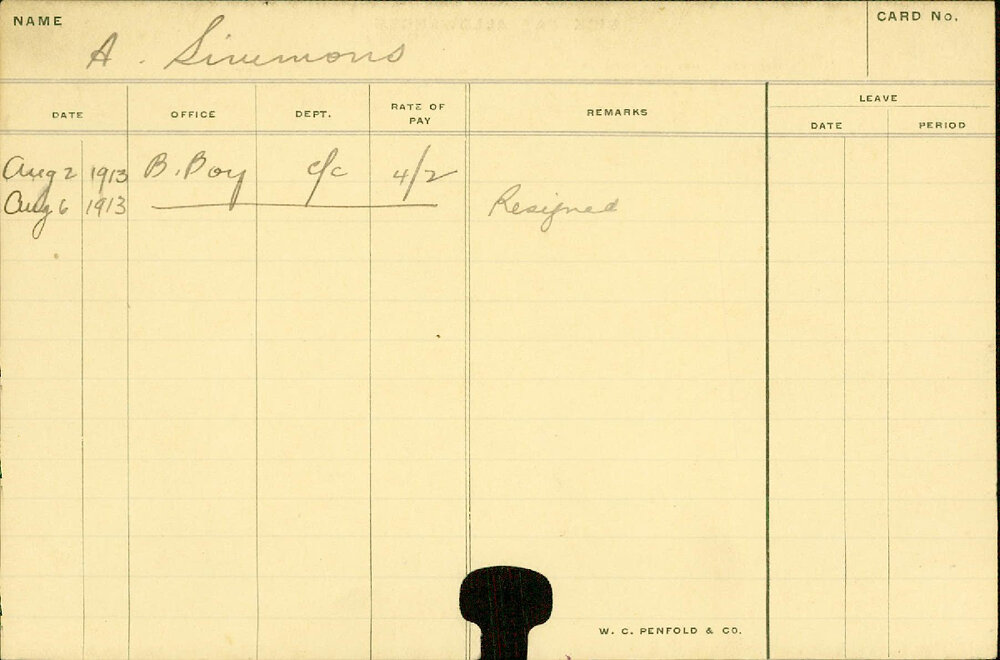 NAME
A. Simmons
CARD No.
DATE OFFICE DEPT. RATE OF PAY REMARKS LEAVE
DATE PERIOD
Aug 2 1913 B. Boy c/c 4/2
Aug 6 1913 Resigned
W. C. PENFOLD & CO.